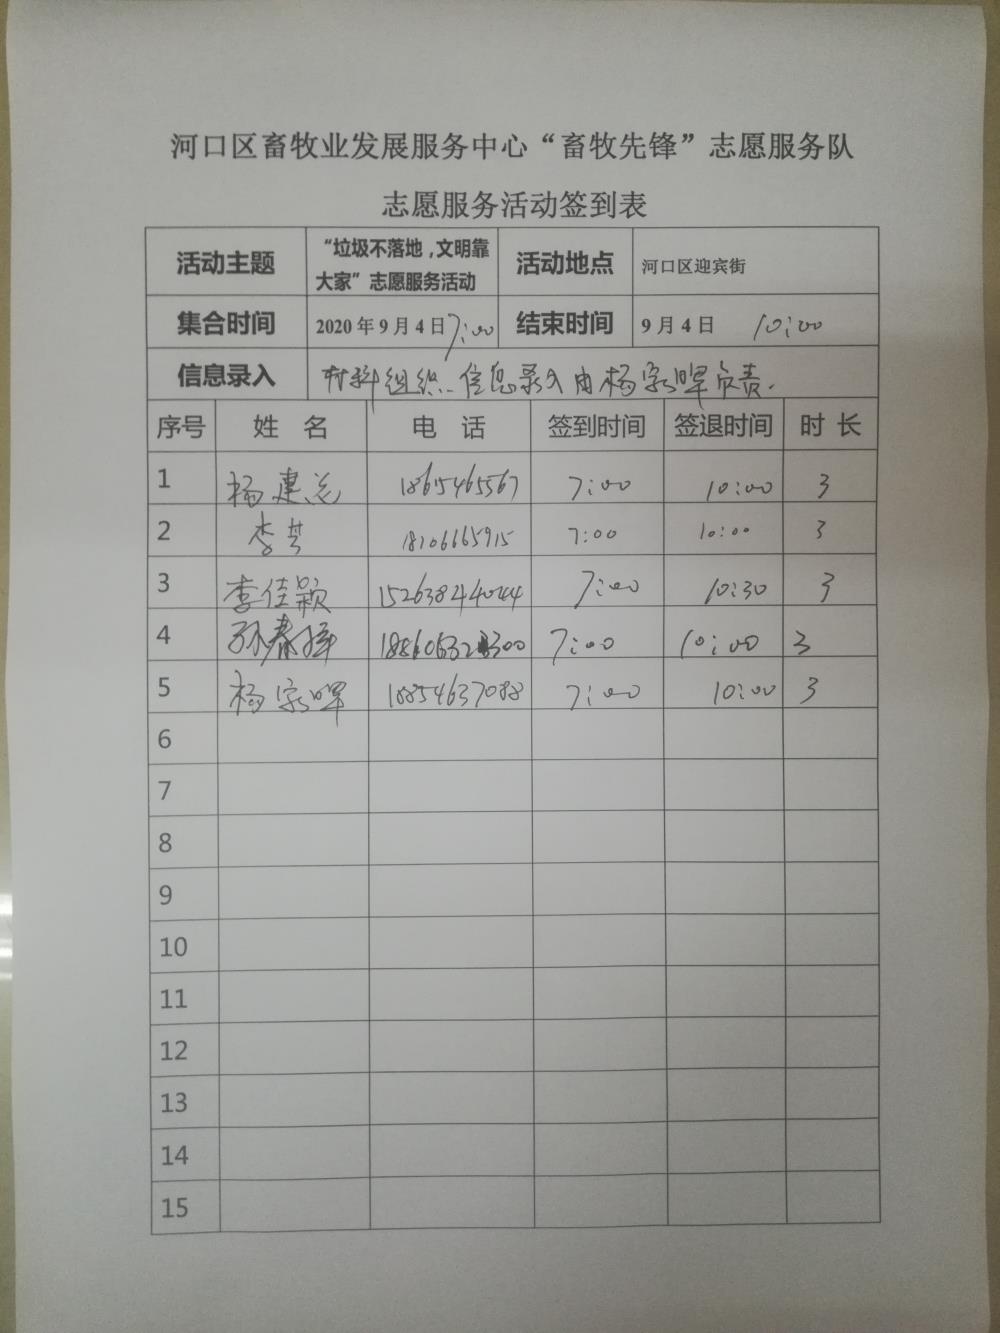 河口区畜牧业发展服务中心“畜牧先锋”志愿服务队
志愿服务活动签到表
活动主题 “垃圾不落地，文明靠大家”志愿服务活动 活动地点 河口区迎宾街
集合时间 2020年9月4日7:00 结束时间 9月4日 10:00
信息录入 材料组织、信息录入由杨家晖负责.
序号 姓 名 电 话 签到时间 签退时间 时 长
1 杨建 18615465567 7:00 10:00 3
2 李 18106665915 7:00 10:00 3
3 李佳颖 15263844044 7:00 10:30 3
4 孙春 7:00 10:00 3
5 杨家晖 18854637088 7:00 10:00 3
6
7
8
9
10
11
12
13
14
15